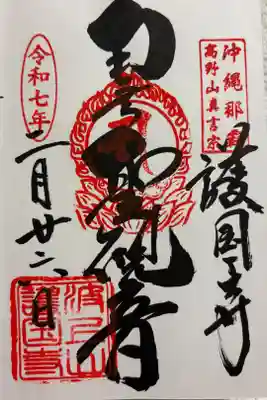 沖縄那覇
高野山真言宗
護国寺
聖観音
令和七年
二月廿 日
波上山
護国寺